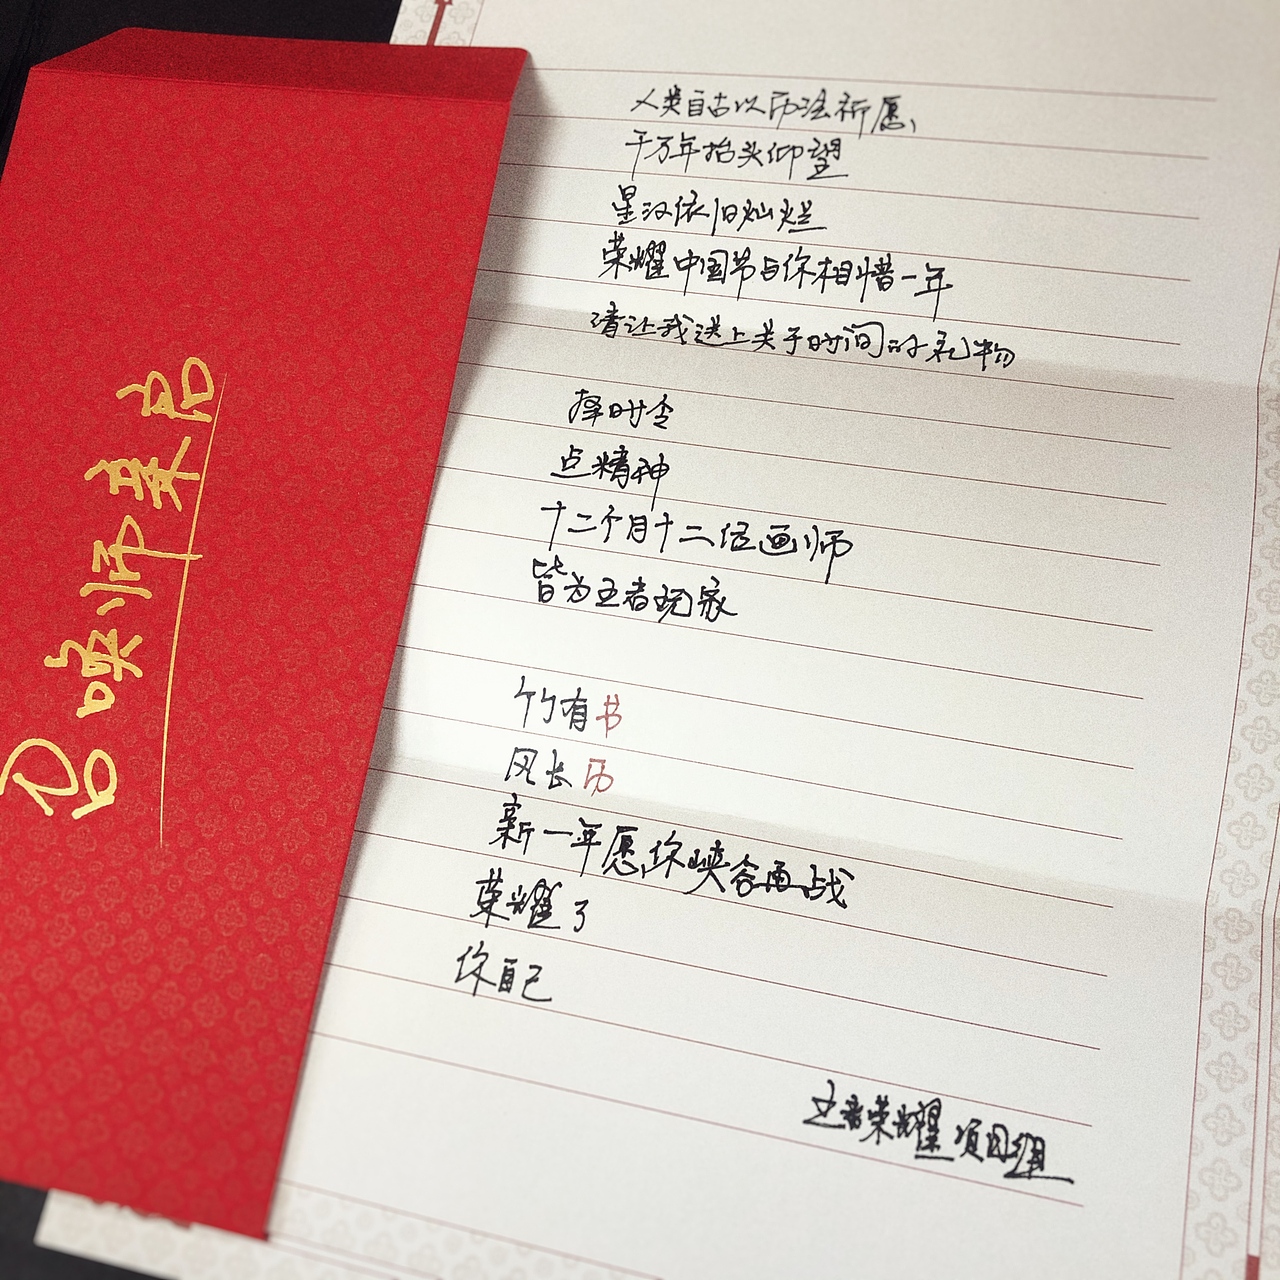 召唤师亲启
人类自古以历法祈愿,
千万年抬头仰望
星汉依旧灿烂
荣耀中国节与你相惜一年
请让我送上关于时间的礼物
择时令
点精神
十二个月十二位画师
皆为王者玩家
竹有书
风长历
新一年愿你峡谷再战
荣耀了
你自己
王者荣耀项目组